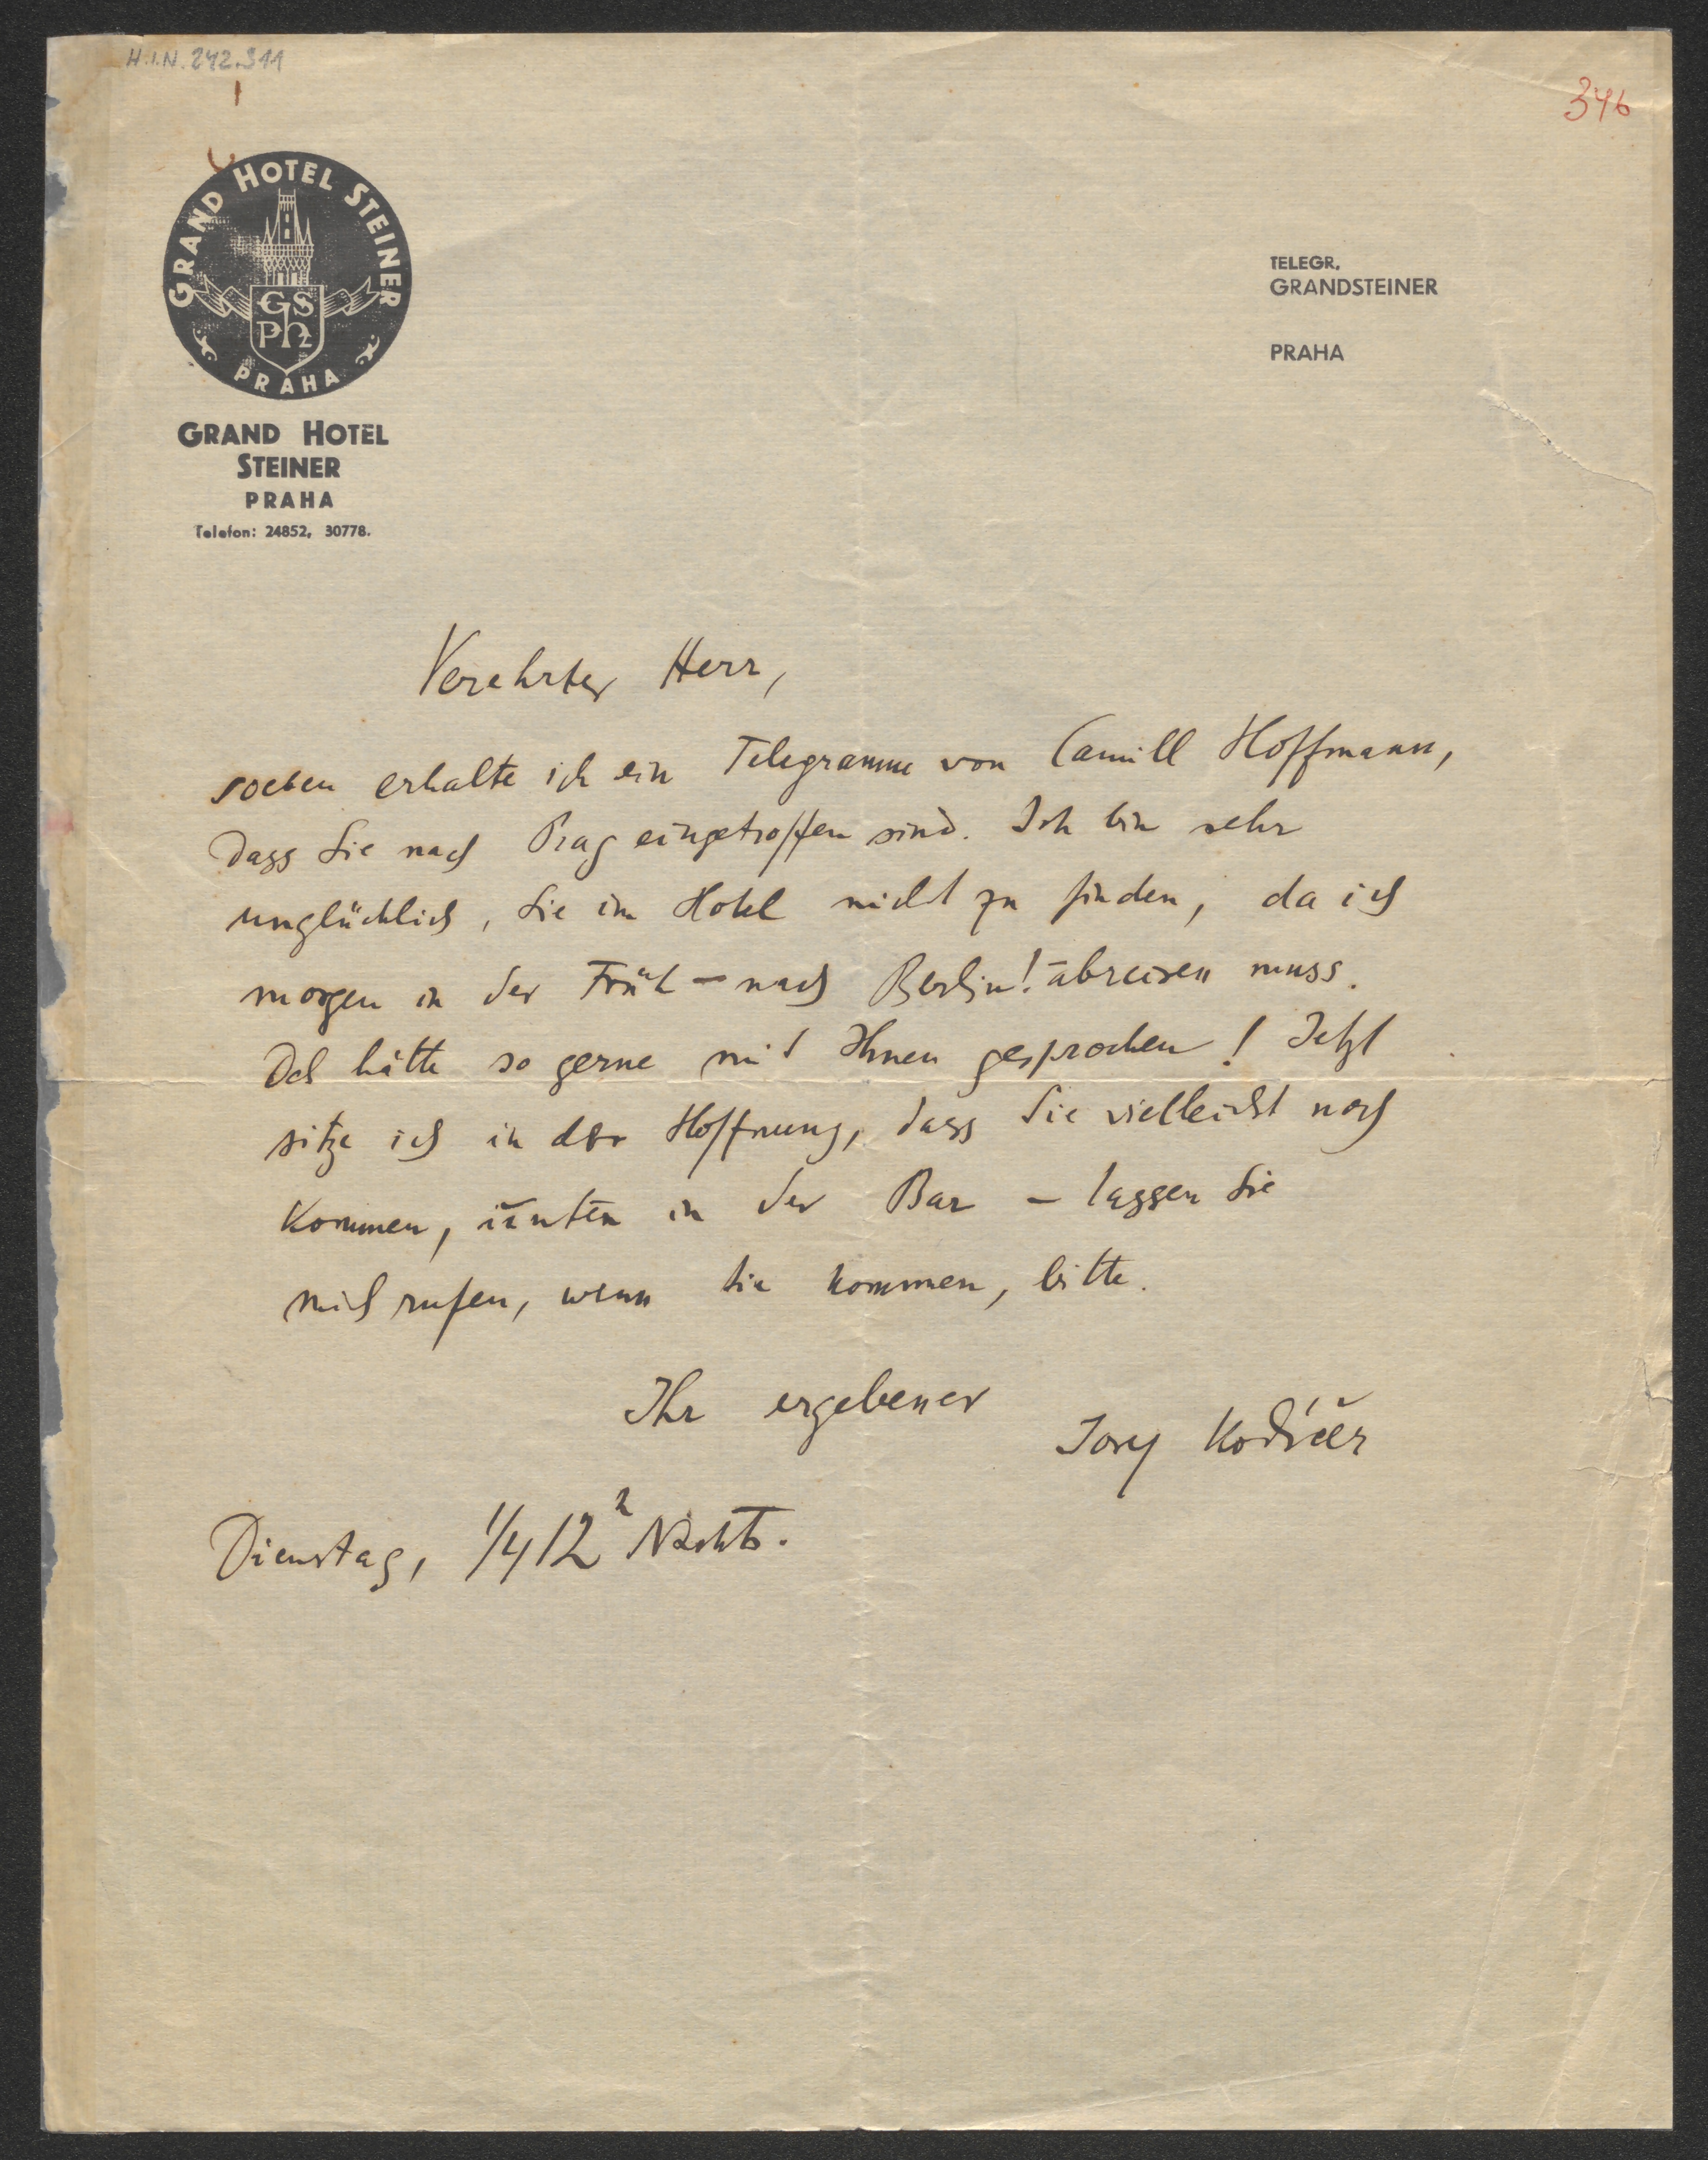 H.I.N. 242.311
346
GRAND HOTEL STEINER
GS
PH
PRAHA
GRAND HOTEL
STEINER
PRAHA
Telefon: 24852, 30778.
TELEGR.
GRANDSTEINER
PRAHA
Verehrter Herr,
soeben erhalte ich ein Telegramm von Camill Hoffmann,
dass Sie nach Prag eingetroffen sind. Ich bin sehr
unglücklich, Sie im Hotel nicht zu finden, da ich
morgen in der Früh – nach Berlin! – abreisen muss.
Ich hätte so gerne mit Ihnen gesprochen! Jetzt
sitze ich in der Hoffnung, dass Sie vielleicht noch
kommen, unten in der Bar – lassen Sie
mich rufen, wenn Sie kommen, bitte.
Ihr ergebener
Kodíček
Dienstag, 1/4 12 h Nachts.